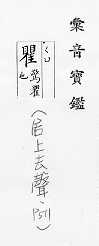 彙音寶鑑
瞿
驚瞿
也
(居上去聲,P511)